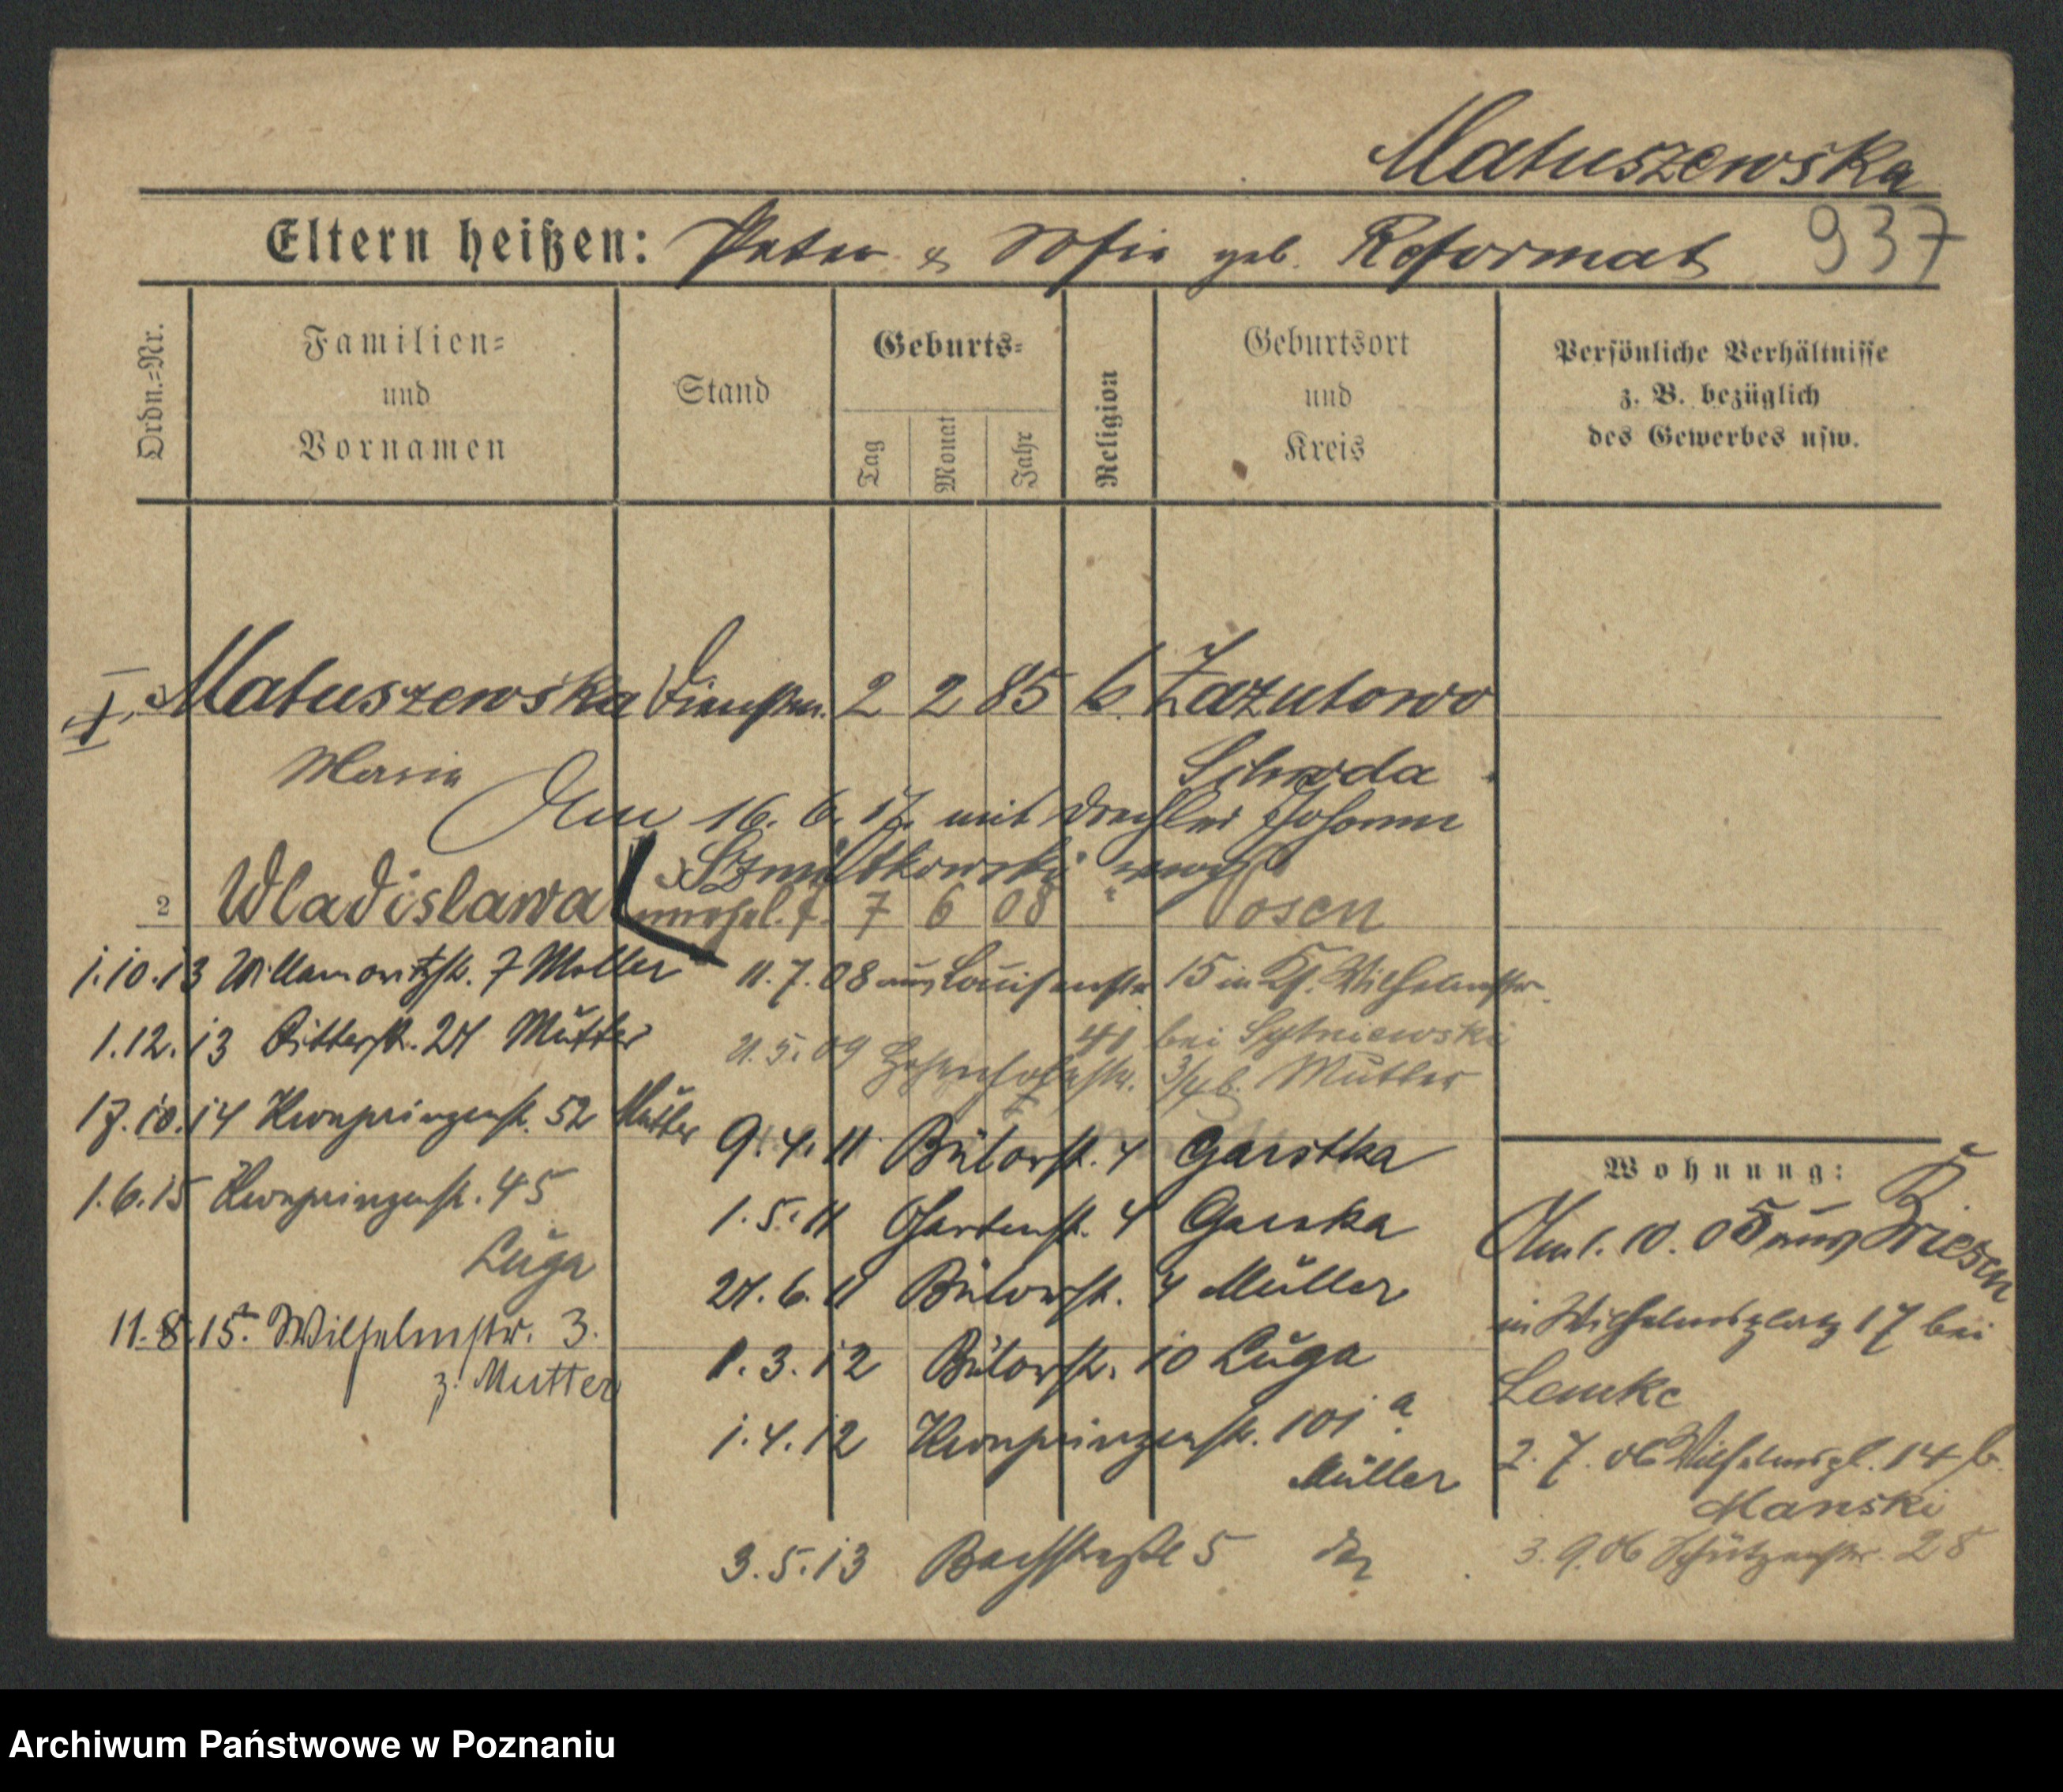 Matuszewska
Eltern heißen: Peter & Sofie geb. Reformat 937
Ordn.=Nr.
Familien=
und
Vornamen
Stand
Geburts=
Tag
Monat
Jahr
Religion
Geburtsort
und
Kreis
Persönliche Verhältnisse
z. B. bezüglich
des Gewerbes usw.
I. Matuszewska 2 2 85 Zazutowo
Maria Schroda
Am 16. 6. 17. mit Johann
2 Wladislawa unehel. T. 7 6 08 " Posen
1.10.13 Willamowitzstr. 7 Moller
1.12.13 Ritterstr. 27 Mutter
17.10.14 Kronprinzenstr. 52 Mutter
1.6.15 Kronprinzenstr. 45
Luga
11.8.15. Wilhelmstr. 3.
z. Mutter
11.7.08 aus Louisenstr. 15 in Wilhelmstr.
bei
21.5.09 Mutter
9.4.11 Bülowstr. 4 Garstka
1.5.11 Gartenstr. 4
27.6.11 Bülowstr. 4 Müller
1.3.12 Bülowstr. 10 Luga
1.4.12 Kronprinzenstr. 101 a
Müller
3.5.13 Bachstraße 5
Wohnung:
Am 1. 10. 05 aus Briesen
in Wilhelmsplatz 17 bei
Lemke
2. 7. 06 Wilhelmspl. 14 b.
Manski
3. 9. 06 Schützenstr. 28
Archiwum Państwowe w Poznaniu